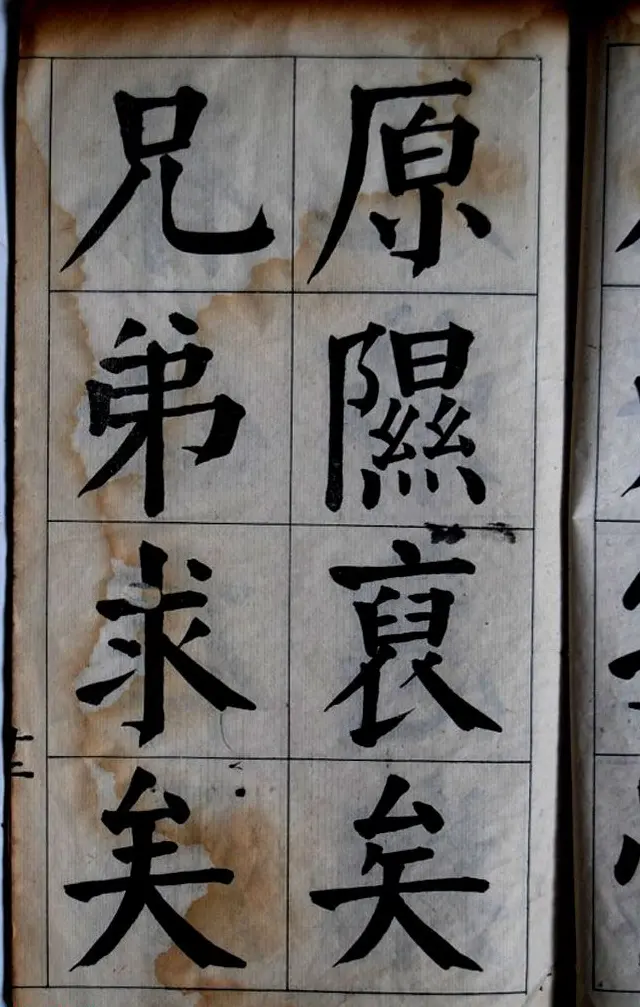 原隰裒矣
兄弟求矣